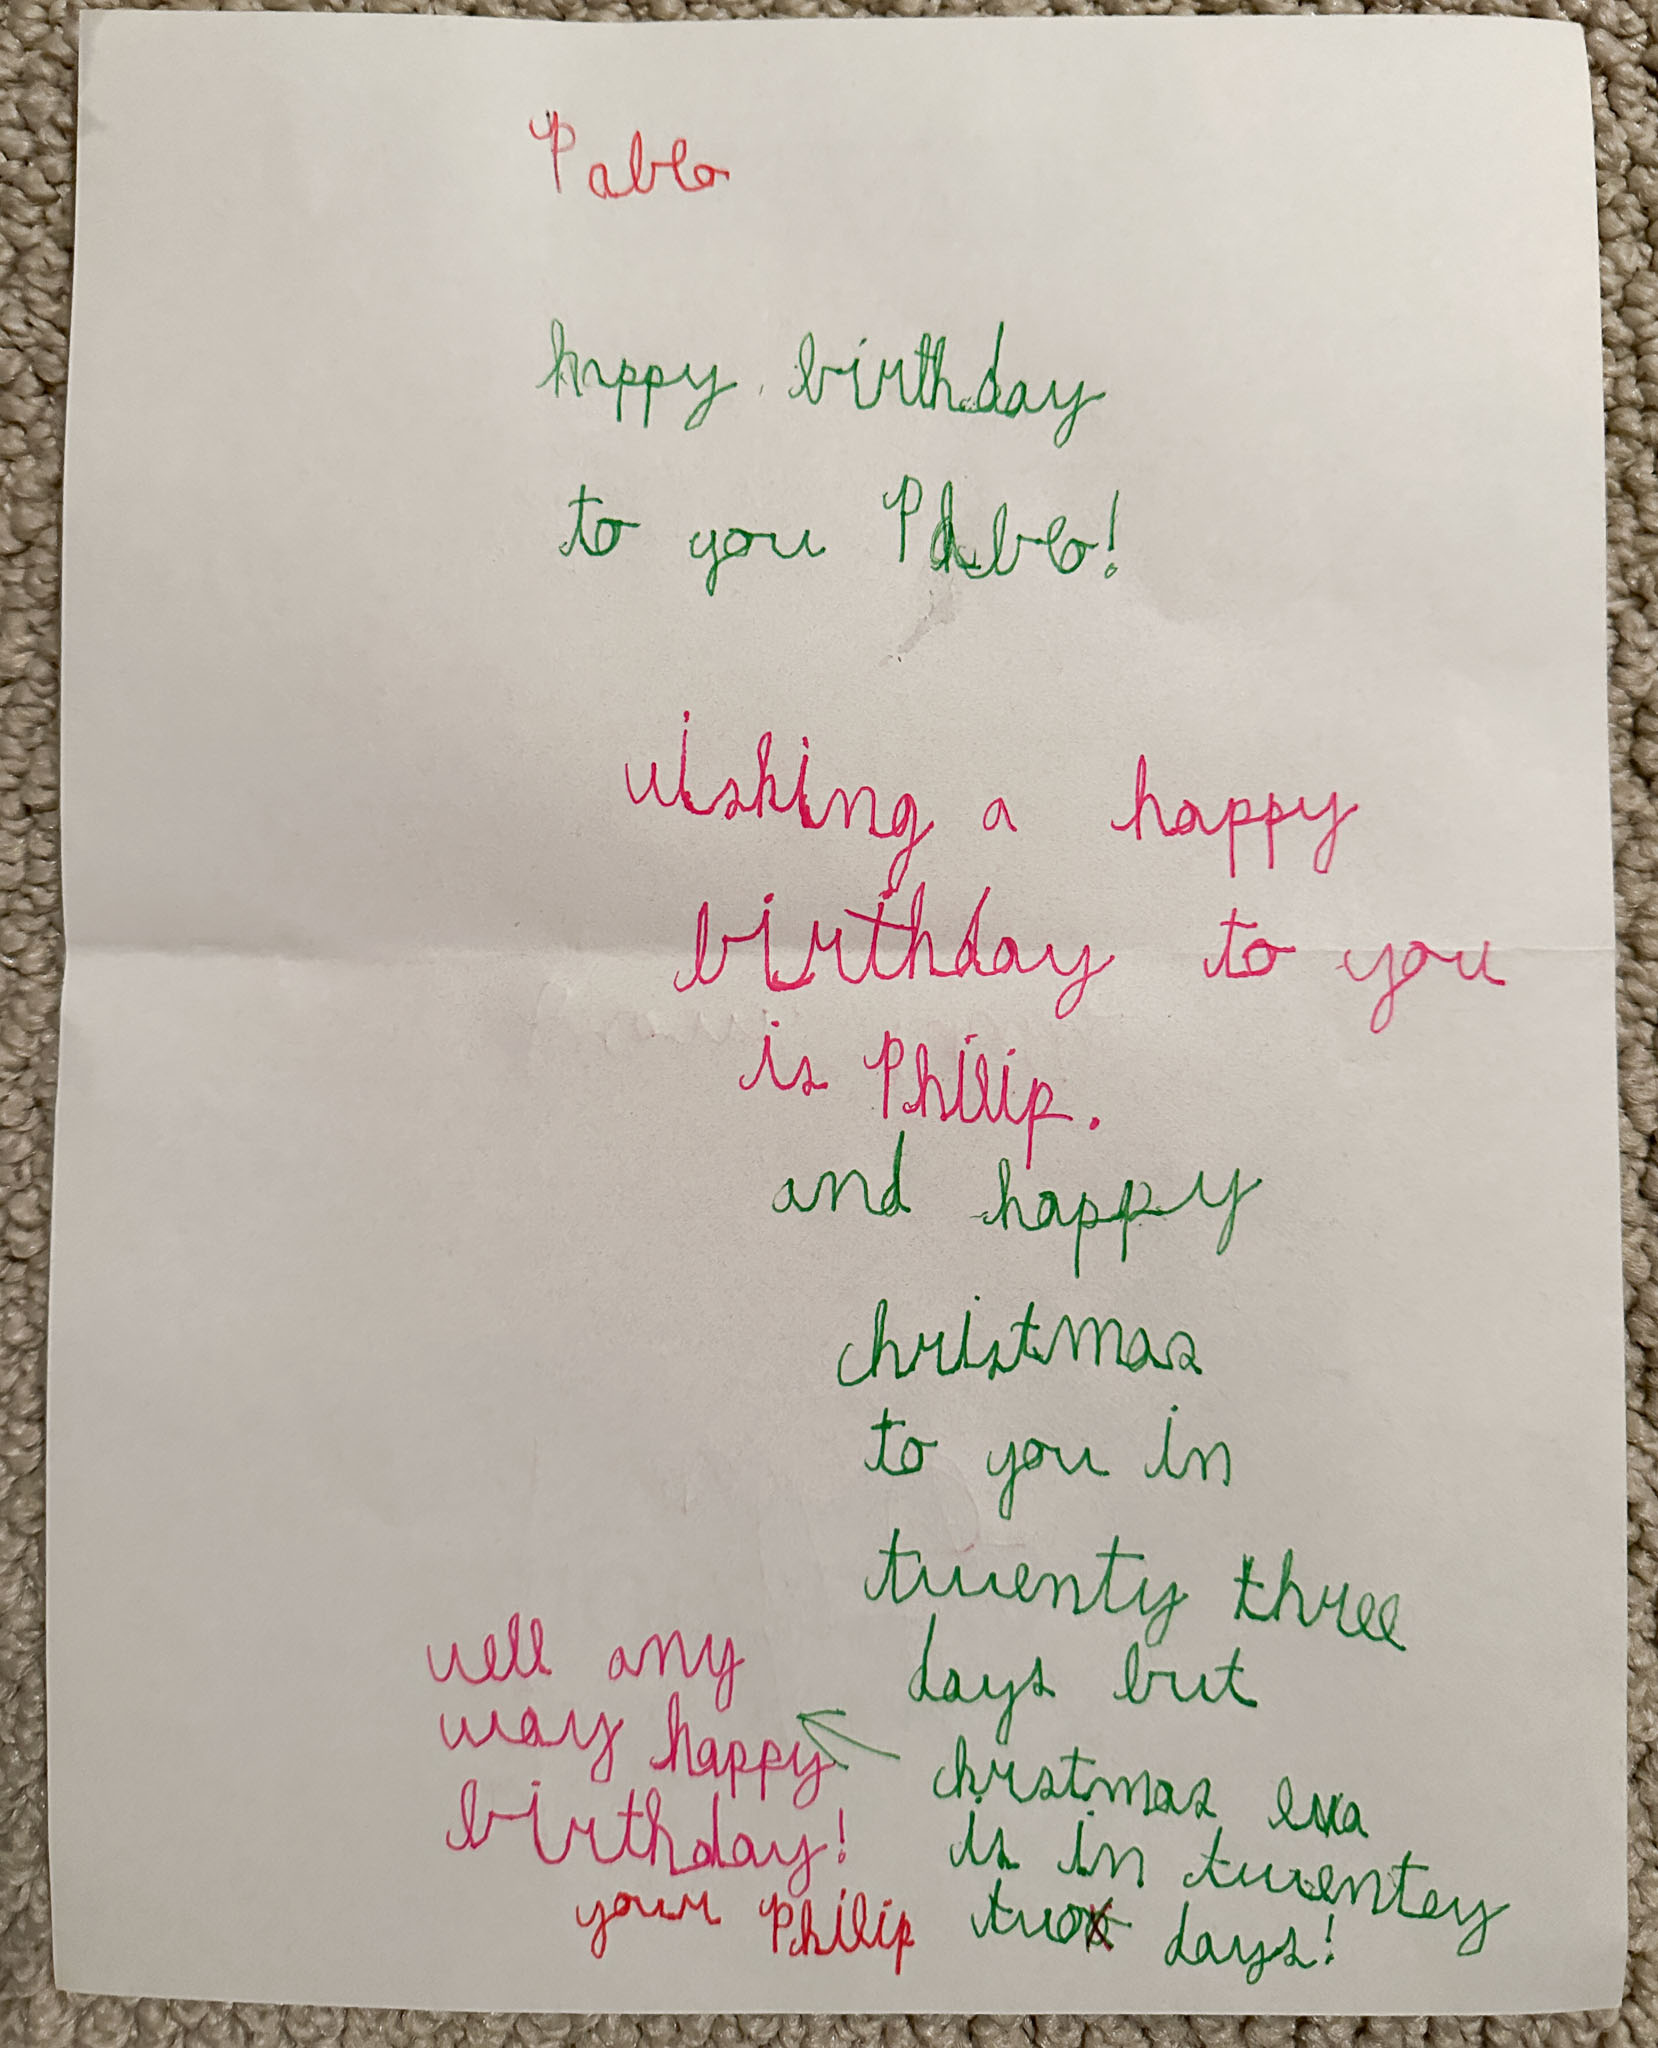 Pablo
happy birthday
to you Pablo!
wishing a happy
birthday to you
is Philip.
and happy
christmas
to you in
twenty three
days but
chrstmas eva
is in twentey
two days!
well any
way happy
birthday!
your Philip